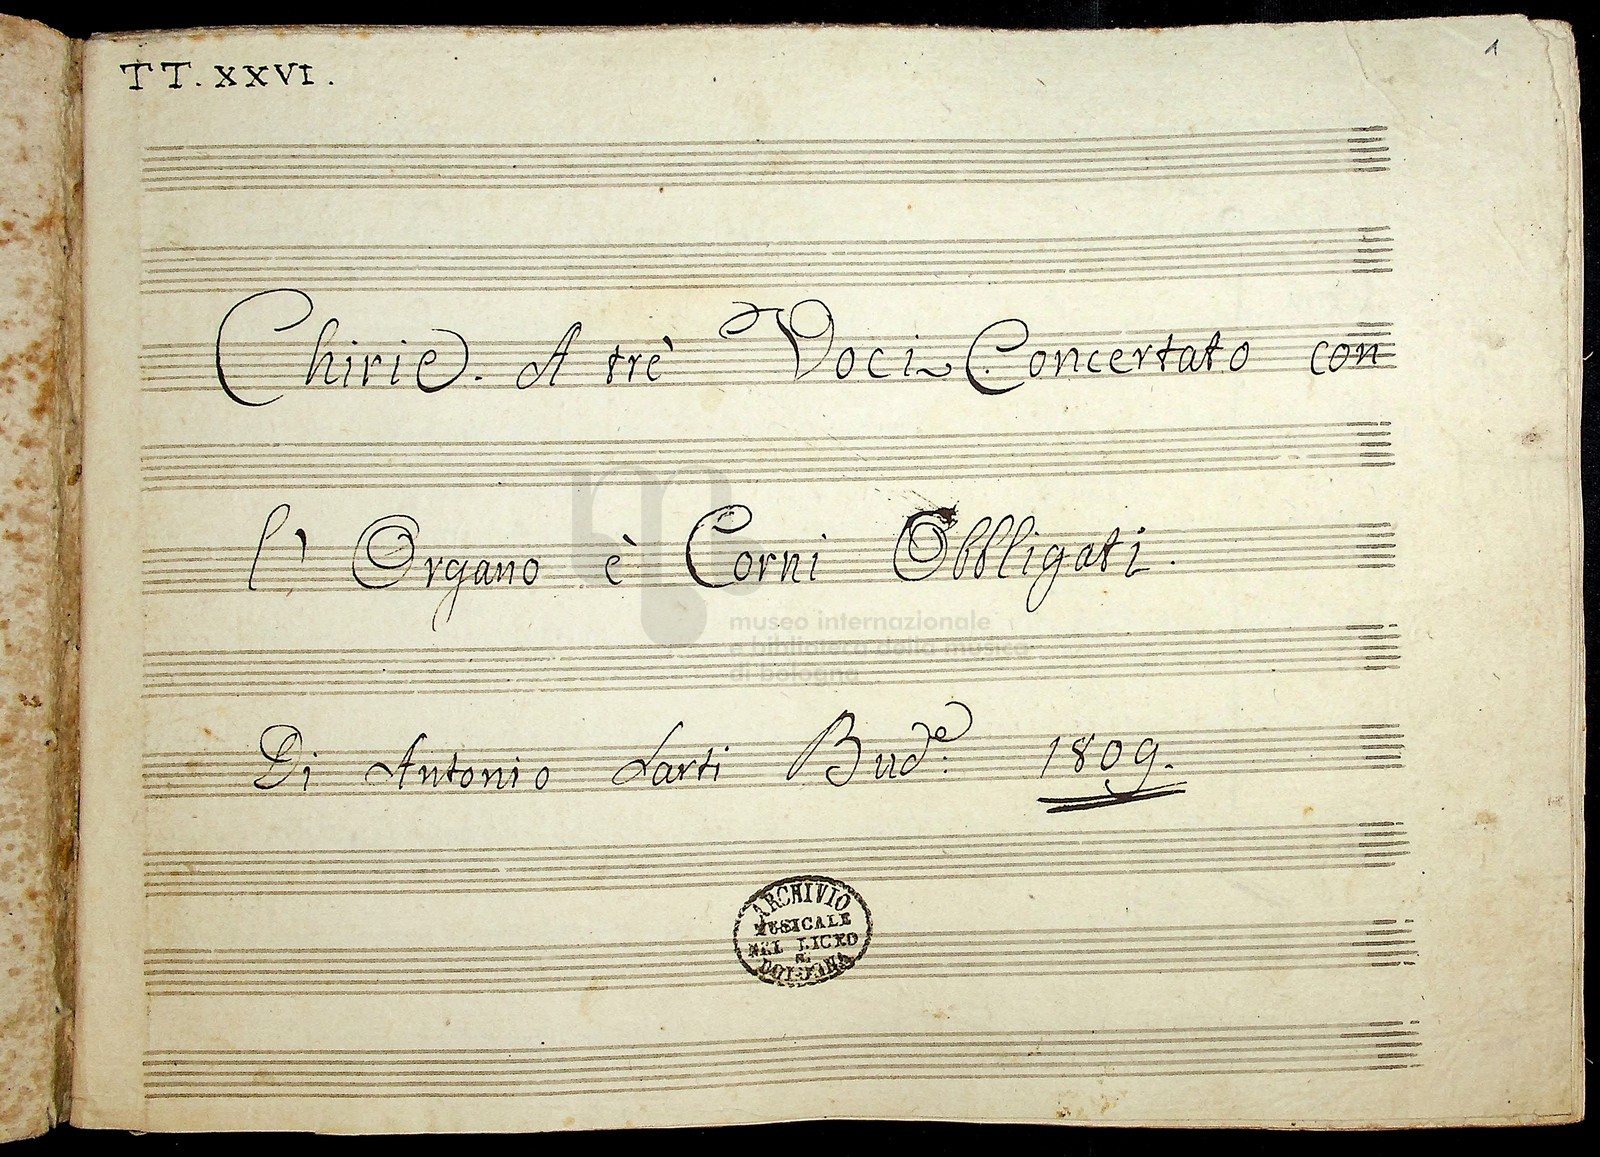 TT. XXVI.
1
Chirie. A trè Voci Concertato con
l' Organo è Corni Obbligati.
museo internazionale
e biblioteca della musica
di bologna
Di Antonio Sarti Bud.e 1809.
ARCHIVIO
MUSICALE
NEL LICEO